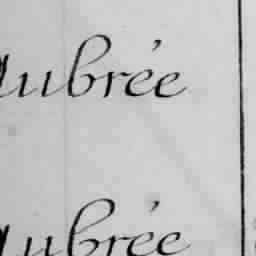 aubrée
aubrée